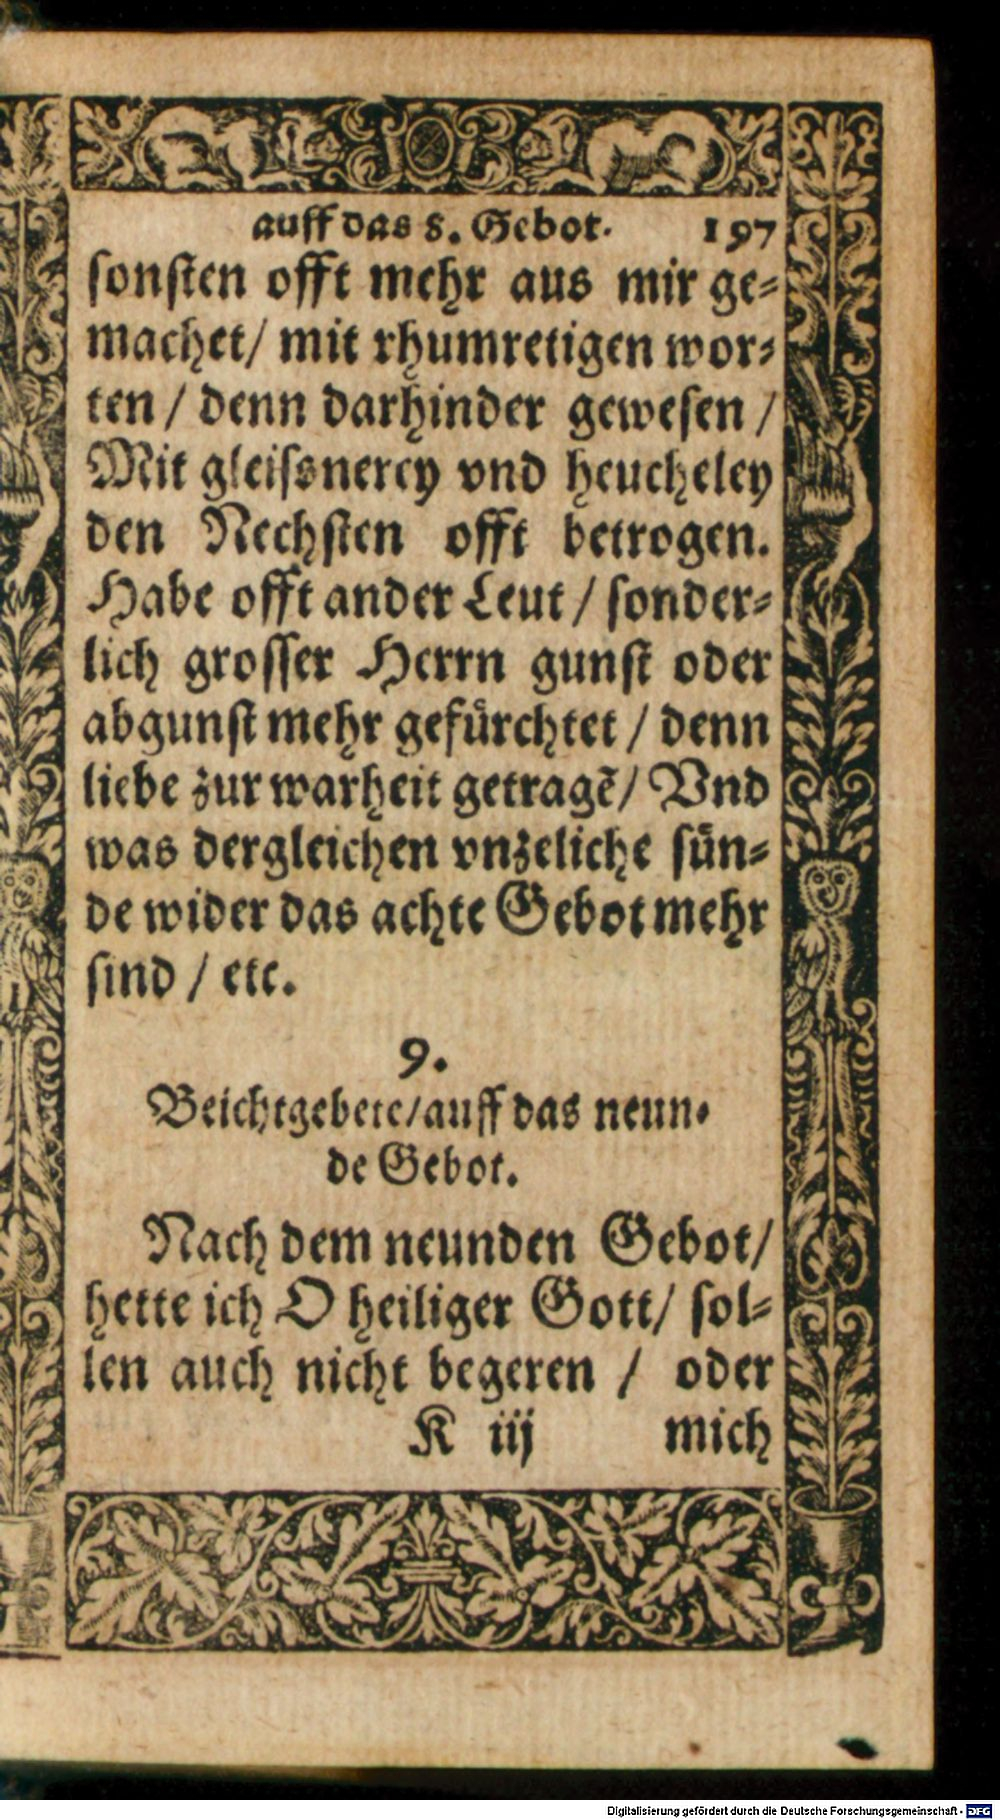 auff das 8. Gebot. 197
sonsten offt mehr aus mir ge-
machet/ mit rhumretigen wor-
ten / denn darhinder gewesen /
Mit gleissnerey vnd heucheley
den Nechsten offt betrogen.
Habe offt ander Leut / sonder-
lich grosser Herrn gunst oder
abgunst mehr gefürchtet / denn
liebe zur warheit getragẽ/ Vnd
was dergleichen vnzeliche sün-
de wider das achte Gebot mehr
sind / etc.
9.
Beichtgebete/auff das neun-
de Gebot.
Nach dem neunden Gebot/
hette ich O heiliger Gott/ sol-
len auch nicht begeren / oder
K iij mich
Digitalisierung gefördert durch die Deutsche Forschungsgemeinschaft - DFG